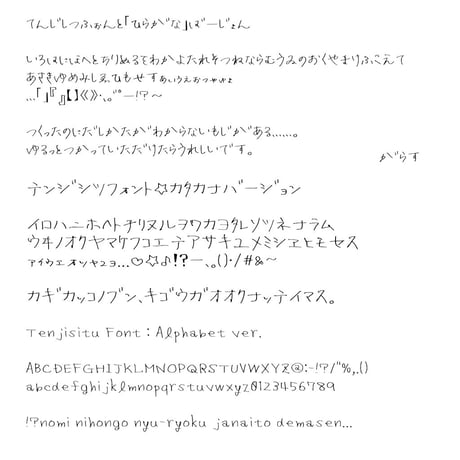 てんじしつふぉんと「ひらがな」ばーじょん
いろはにほへとちりぬるをわかよたれそつねならむうゐのおくやまけふこえて
あさきゆめみしゑひもせすぁぃぅぇぉっゃゅょ
…「」『』【】《》・、。゛゜ー!?〜
つくったのにだしかたがわからないもじがある……。
ゆるっとつかっていただけたらうれしいです。
がらす
テンジシツフォント☆カタカナバージョン
イロハニホヘトチリヌルヲワカヨタレソツネナラム
ウヰノオクヤマケフコエテアサキユメミシヱヒモセス
ァィゥェォッャュョ…♡☆♪!?ー、。()・/#&〜
カギカッコノブン、キゴウガオオクナッテイマス。
Tenjisitu Font：Alphabet ver.
ABCDEFGHIJKLMNOPQRSTUVWXYZ@:-!?/"%,.()
abcdefghijklmnopqrstuvwxyz0123456789
!?nomi nihongo nyu-ryoku janaito demasen...